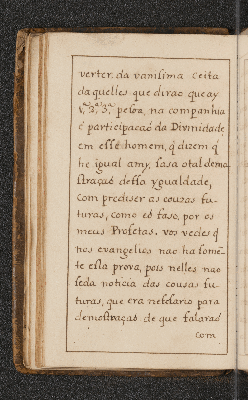 verter. da vanissima Ceita
daquelles que dirao que ay
1.ª 2.ª 3.ª pesoa, na companhia
é participacaõ da Divindade
em esse homem, q̃ dizem q̃
he igual amy, fasa otal demo
straçaõ dessa ygualdade,
Com prediser as cousas fu-
turas, como eo faso, por os
meus Profetas. vos vedes q̃
nos evangelios nao ha somẽ-
te essa prova, pois nelles nao
se da noticia das cousas fu-
turas, que era nesesario para
demostraçaõ de que falaraõ
com